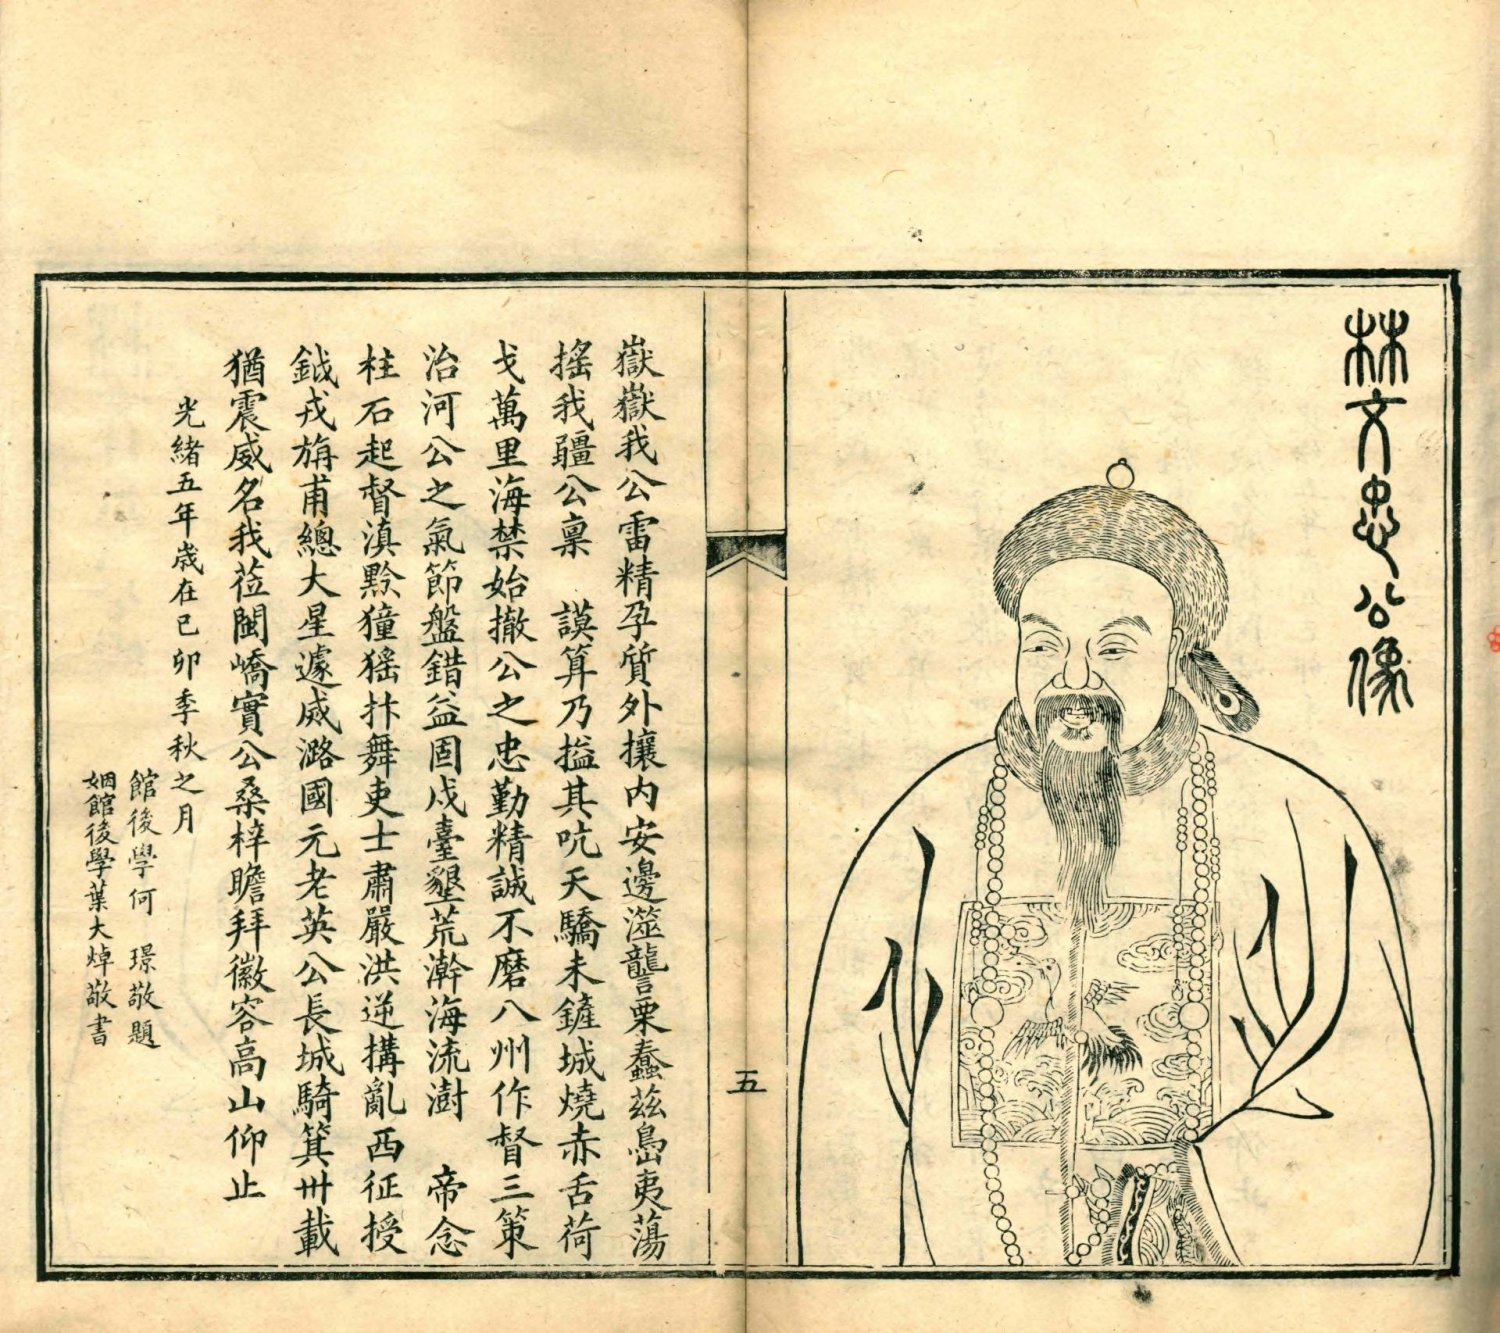 林文忠公像
五
嶽嶽我公雷精孕質外攘内安邊澨讋栗蠢茲島夷蕩
搖我疆公稟　謨算乃搤其吭天驕未鏟城燒赤舌荷
戈萬里海禁始撤公之忠勤精誠不磨八州作督三策
治河公之氣節盤錯益固戍臺墾荒瀚海流澍　帝念
柱石起督滇黔獞猺抃舞吏士肅嚴洪逆搆亂西征授
鉞戎旃甫總大星遽烕潞國元老英公長城騎箕卅載
猶震威名我莅閩嶠實公桑梓瞻拜徽容高山仰止
光緒五年歲在已卯季秋之月
館後學何　璟敬題
姻館後學葉大焯敬書